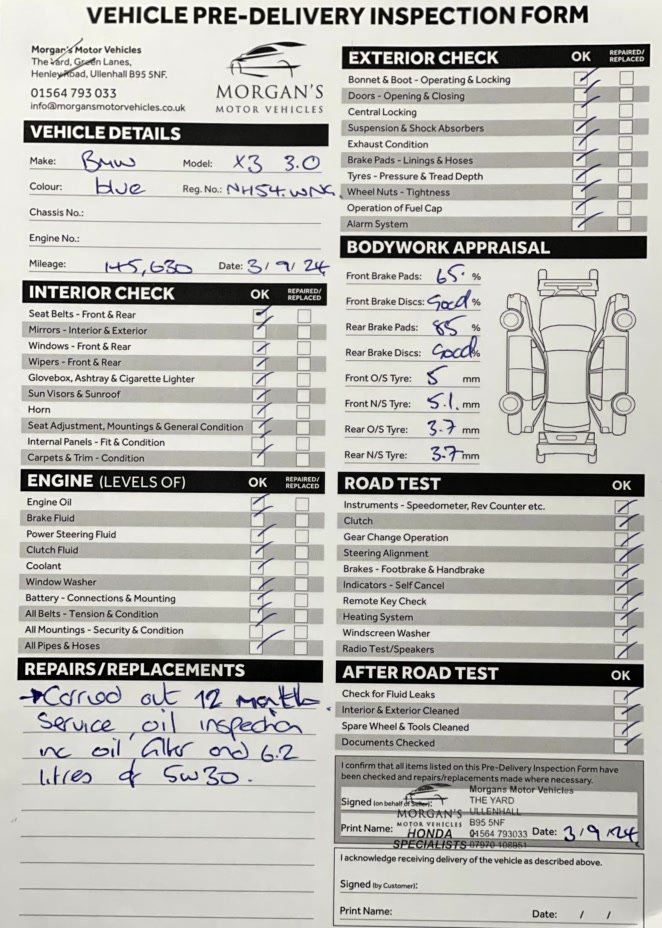 VEHICLE PRE-DELIVERY INSPECTION FORM
Morgan's Motor Vehicles
The Yard, Green Lanes,
Henley Road, Ullenhall B95 5NF.
01564 793 033
info@morgansmotorvehicles.co.uk
MORGAN'S
MOTOR VEHICLES
VEHICLE DETAILS
Make: BMW Model: X3 3.0
Colour: blue Reg. No.: NH54.WNG.
Chassis No.:
Engine No.:
Mileage: 145,630 Date: 3/9/24
INTERIOR CHECK OK REPAIRED/REPLACED
Seat Belts - Front & Rear
Mirrors - Interior & Exterior
Windows - Front & Rear
Wipers - Front & Rear
Glovebox, Ashtray & Cigarette Lighter
Sun Visors & Sunroof
Horn
Seat Adjustment, Mountings & General Condition
Internal Panels - Fit & Condition
Carpets & Trim - Condition
ENGINE (LEVELS OF) OK REPAIRED/REPLACED
Engine Oil
Brake Fluid
Power Steering Fluid
Clutch Fluid
Coolant
Window Washer
Battery - Connections & Mounting
All Belts - Tension & Condition
All Mountings - Security & Condition
All Pipes & Hoses
REPAIRS/REPLACEMENTS
→Carried out 12 months
Service, oil inspection
inc oil filter and 6.2
litres of 5w30.
EXTERIOR CHECK OK REPAIRED/REPLACED
Bonnet & Boot - Operating & Locking
Doors - Opening & Closing
Central Locking
Suspension & Shock Absorbers
Exhaust Condition
Brake Pads - Linings & Hoses
Tyres - Pressure & Tread Depth
Wheel Nuts - Tightness
Operation of Fuel Cap
Alarm System
BODYWORK APPRAISAL
Front Brake Pads: 65. %
Front Brake Discs: Good %
Rear Brake Pads: 85 %
Rear Brake Discs: Good %
Front O/S Tyre: 5 mm
Front N/S Tyre: 5.1. mm
Rear O/S Tyre: 3.7 mm
Rear N/S Tyre: 3.7 mm
ROAD TEST OK
Instruments - Speedometer, Rev Counter etc.
Clutch
Gear Change Operation
Steering Alignment
Brakes - Footbrake & Handbrake
Indicators - Self Cancel
Remote Key Check
Heating System
Windscreen Washer
Radio Test/Speakers
AFTER ROAD TEST OK
Check for Fluid Leaks
Interior & Exterior Cleaned
Spare Wheel & Tools Cleaned
Documents Checked
I confirm that all items listed on this Pre-Delivery Inspection Form have
been checked and repairs/replacements made where necessary.
Morgans Motor Vehicles
Signed (on behalf of Seller): THE YARD
MORGAN'S ULLENHALL
MOTOR VEHICLES B95 5NF
Print Name: HONDA 01564 793033 Date: 3/9/24.
SPECIALISTS 07970 108951
I acknowledge receiving delivery of the vehicle as described above.
Signed (by Customer):
Print Name: Date: / /